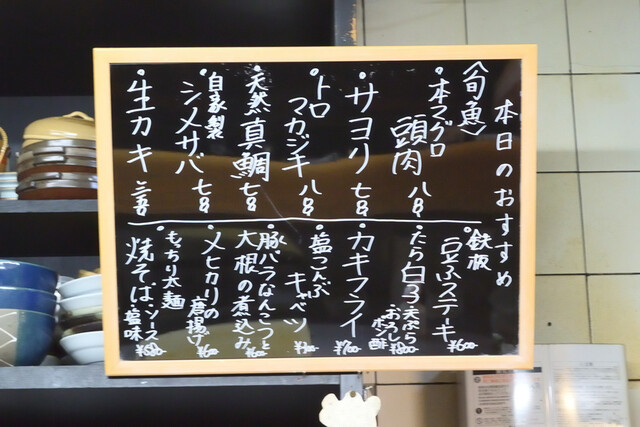 本日のおすすめ
〈旬魚〉
・本マグロ
頭肉 八〇〇
・サヨリ 七〇〇
・トロ
マカジキ 八〇〇
・天然真鯛 七〇〇
・自家製
シメサバ 七〇〇
・生カキ
・鉄板
豆ふステーキ ¥600-
・たら白子天ぷら
おろしポン酢 ¥800-
・カキフライ ¥700-
・塩こんぶ
キャベツ
・豚バラなんこつと
大根の煮込み ¥600-
・メヒカリの
唐揚げ ¥600-
・もっちり太麺
焼そば・ソース
・塩味 ¥680-